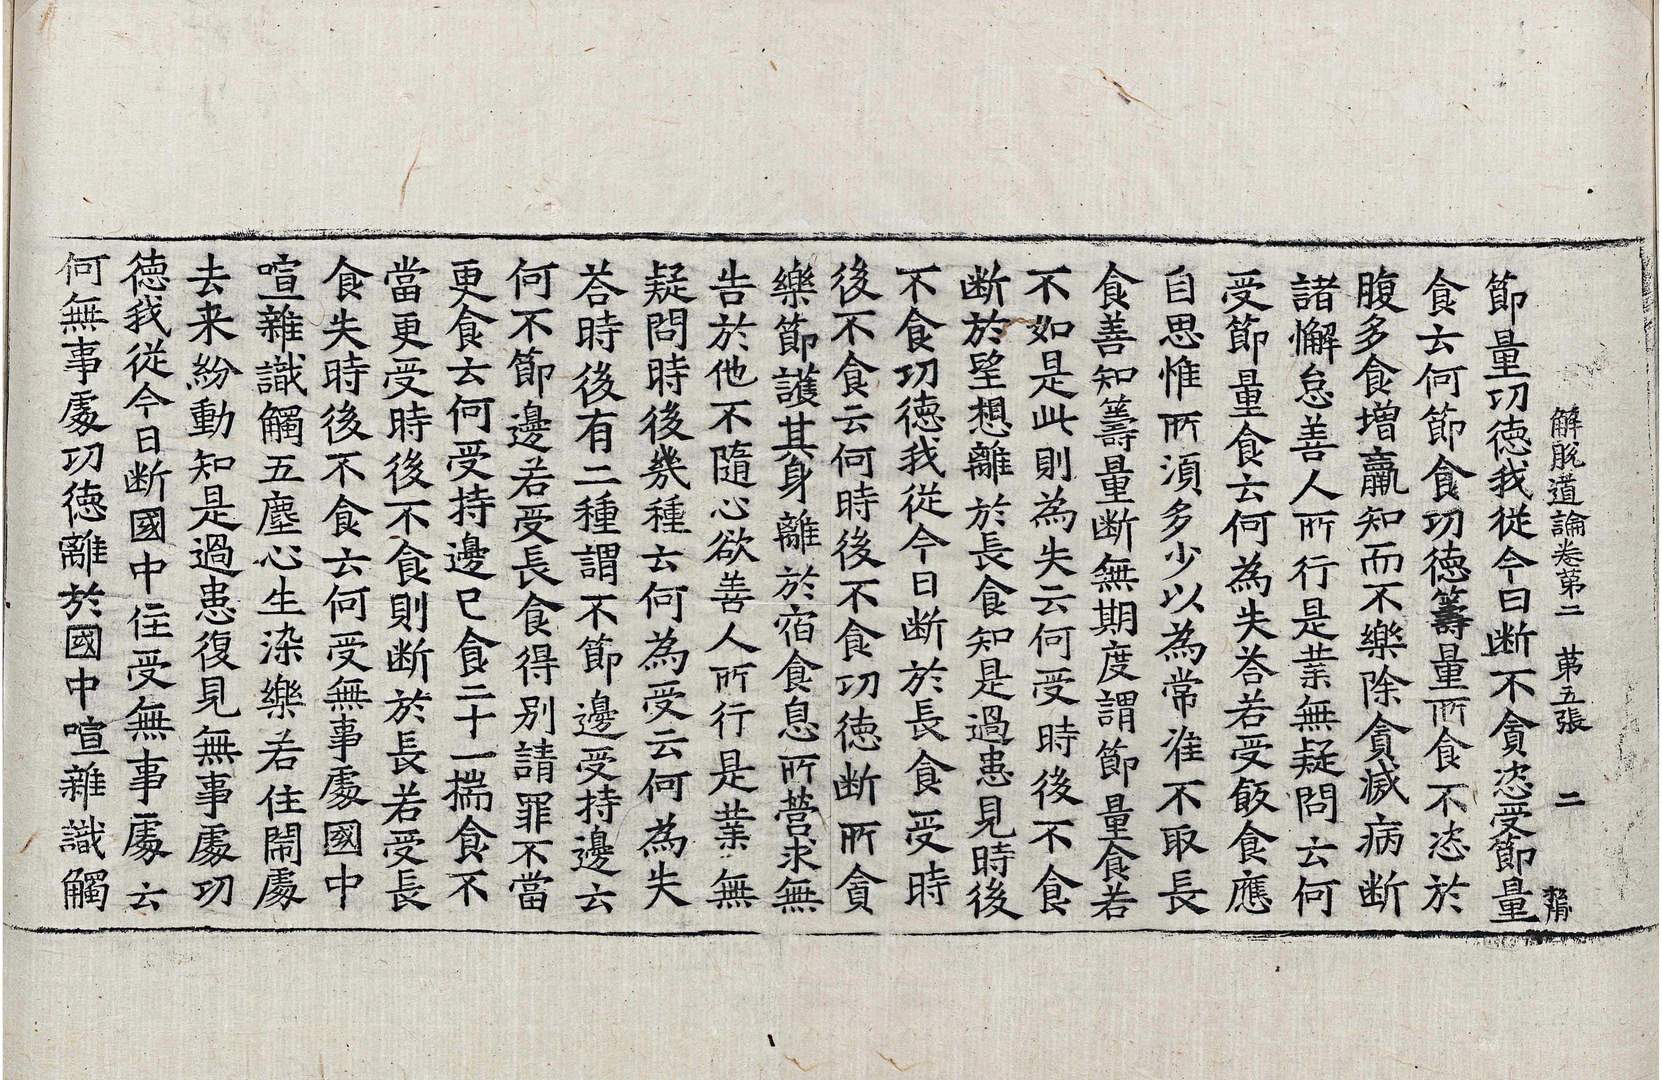 解脫道論卷第二　第五張　二
節量功德我從今日断不貪恣受節量
食云何節食功德籌量所食不恣於
腹多食增羸知而不樂除貪滅病断
諸懈怠善人所行是業無疑問云何
受節量食云何為失荅若受飯食應
自思惟所湏多少以為常准不取長
食善知籌量断無期度謂節量食若
不如是此則為失云何受時後不食
断於望想離於長食知是過患見時後
不食功徳我從今日断於長食受時
後不食云何時後不食功徳断所貪
樂節護其身離於宿食息所營求無
告於他不隨心欲善人所行是業無
疑問時後幾種云何為受云何為失
荅時後有二種謂不節邊受持邊云
何不節邊若受長食得別請罪不當
更食云何受持邊已食二十一揣食不
當更受時後不食則断於長若受長
食失時後不食云何受無事處國中
喧雜識觸五塵心生染樂若住閙處
去来紛動知是過患復見無事處功
徳我從今日断國中住受無事處云
何無事處功徳離於國中喧雜識觸